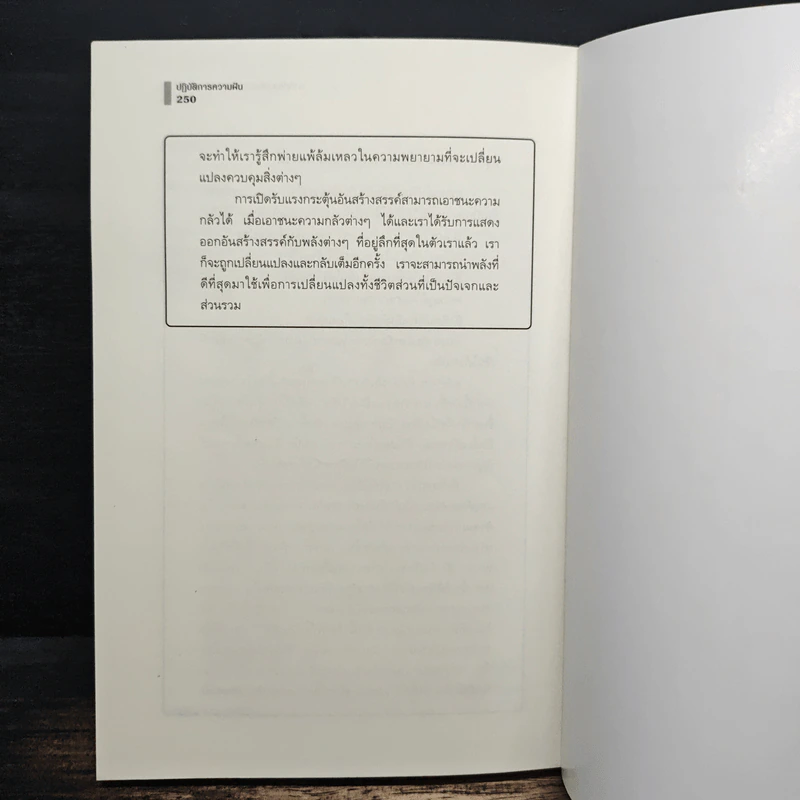 ปฏิบัติการความฝัน
250
จะทำให้เรารู้สึกพ่ายแพ้ล้มเหลวในความพยายามที่จะเปลี่ยน
แปลงควบคุมสิ่งต่างๆ
การเปิดรับแรงกระตุ้นอันสร้างสรรค์สามารถเอาชนะความ
กลัวได้ เมื่อเอาชนะความกลัวต่างๆ ได้และเราได้รับการแสดง
ออกอันสร้างสรรค์กับพลังต่างๆ ที่อยู่ลึกที่สุดในตัวเราแล้ว เรา
ก็จะถูกเปลี่ยนแปลงและกลับเต็มอีกครั้ง เราจะสามารถนำพลังที่
ดีที่สุดมาใช้เพื่อการเปลี่ยนแปลงทั้งชีวิตส่วนที่เป็นปัจเจกและ
ส่วนรวม